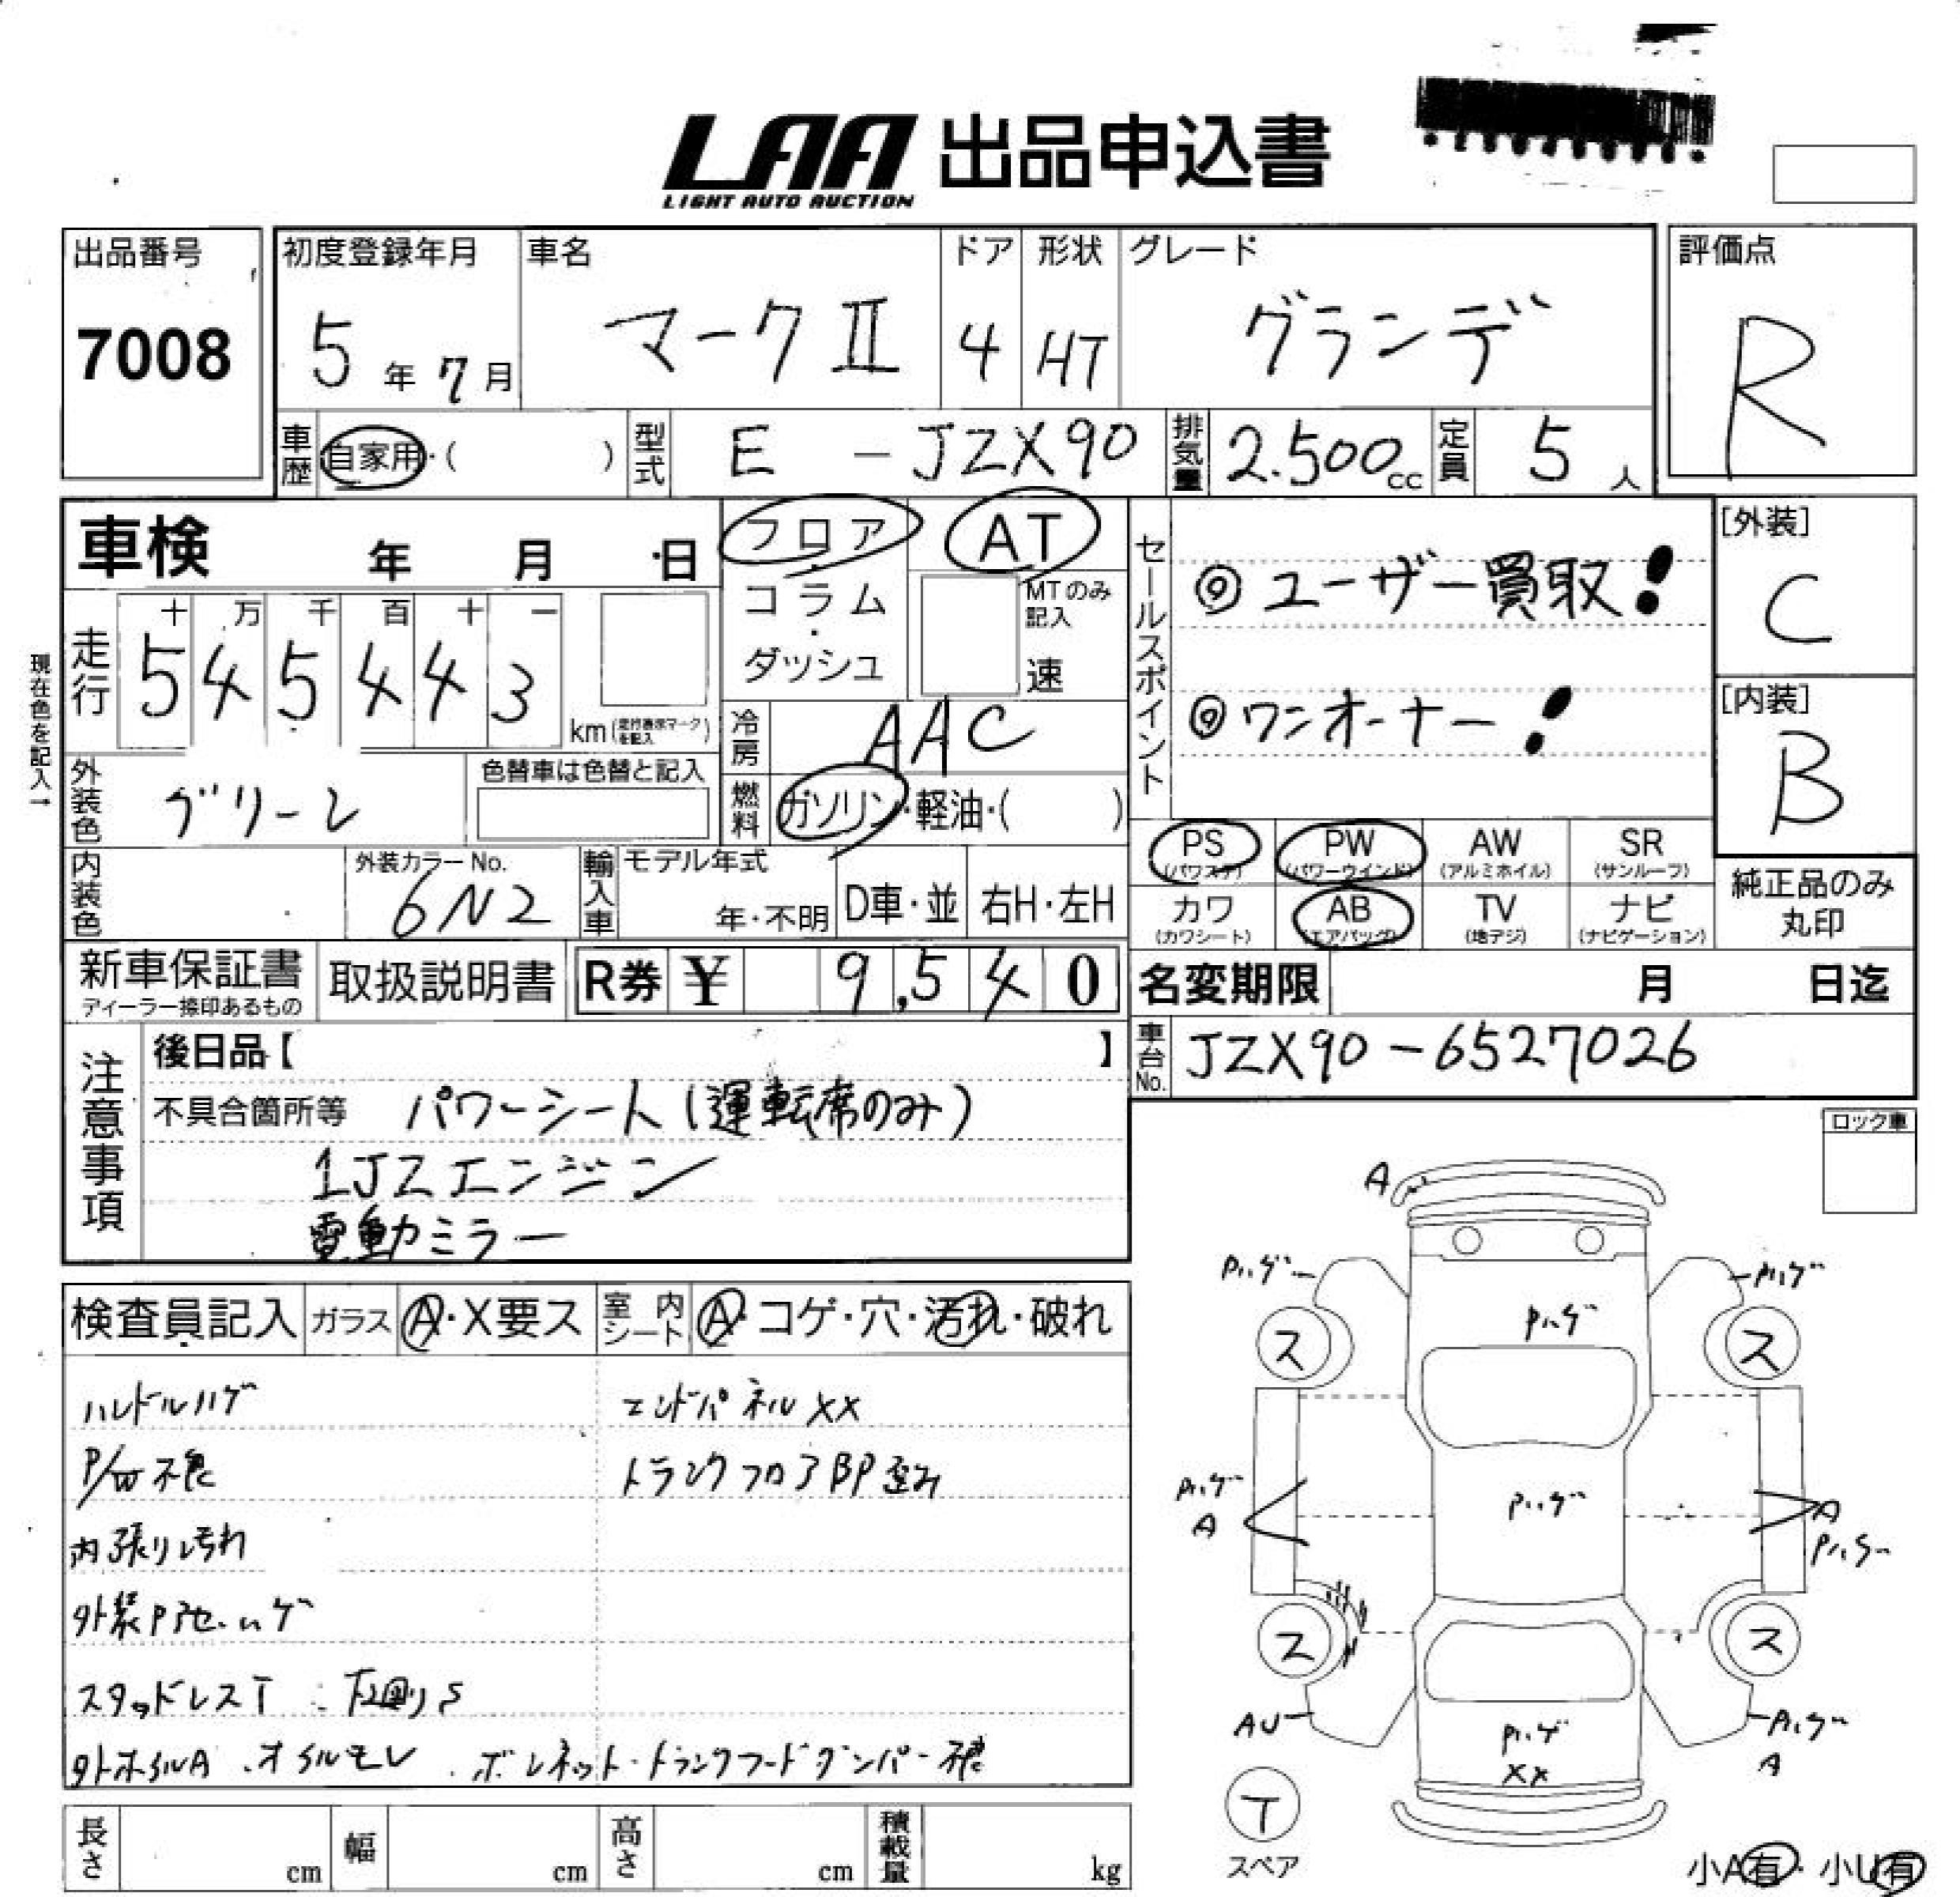 LAA 出品申込書
LIGHT AUTO AUCTION
出品番号
7008
初度登録年月
5年7月
車名
マークⅡ
ドア
4
形状
HT
グレード
グランデ
評価点
R
車歴 自家用・( )
型式 E-JZX90
排気量 2.500cc
定員 5人
車検 年 月 日
フロア
・
コラム
・
ダッシュ
AT
MTのみ記入
速
現在色を記入→
走行
十 万 千 百 十 一
5 4 5 4 4 3
km(走行表示マークを記入)
冷房 AAC
燃料 ガソリン・軽油・( )
外装色 グリーン
色替車は色替と記入
内装色
外装カラーNo.
6N2
輸入車
モデル年式
年・不明
D車・並
右H・左H
セールスポイント
◎ユーザー買取!
◎ワンオーナー!
[外装]
C
[内装]
B
PS
(パワステ)
PW
(パワーウインド)
AW
(アルミホイル)
SR
(サンルーフ)
カワ
(カワシート)
AB
(エアバッグ)
TV
(地デジ)
ナビ
(ナビゲーション)
純正品のみ
丸印
新車保証書
ディーラー捺印あるもの
取扱説明書
R券 ¥ 9,540
名変期限 月 日迄
車台No. JZX90-6527026
注意事項
後日品【 】
不具合箇所等 パワーシート(運転席のみ)
1JZエンジン
電動ミラー
検査員記入
ガラス A・X要ス
室内シート A・コゲ・穴・汚れ・破れ
ハンドルハゲ
P/W不良
内張り汚れ
外装Pアセ、ハゲ
スタッドレスT 下回りS
外ホイルA、オイルモレ、ボンネット・トランクフードダンパー不良
エンドパネルXX
トランクフロアBP歪み
ロック車
A
Pハゲ
Pハゲ
Pハゲ
ス
ス
Pハゲ
A
Pハゲ
A
Pハゲ
ス
ス
AU
Pハゲ
XX
Pハゲ
A
T
スペア
小A有・小U有
長さ cm
幅 cm
高さ cm
積載量 kg